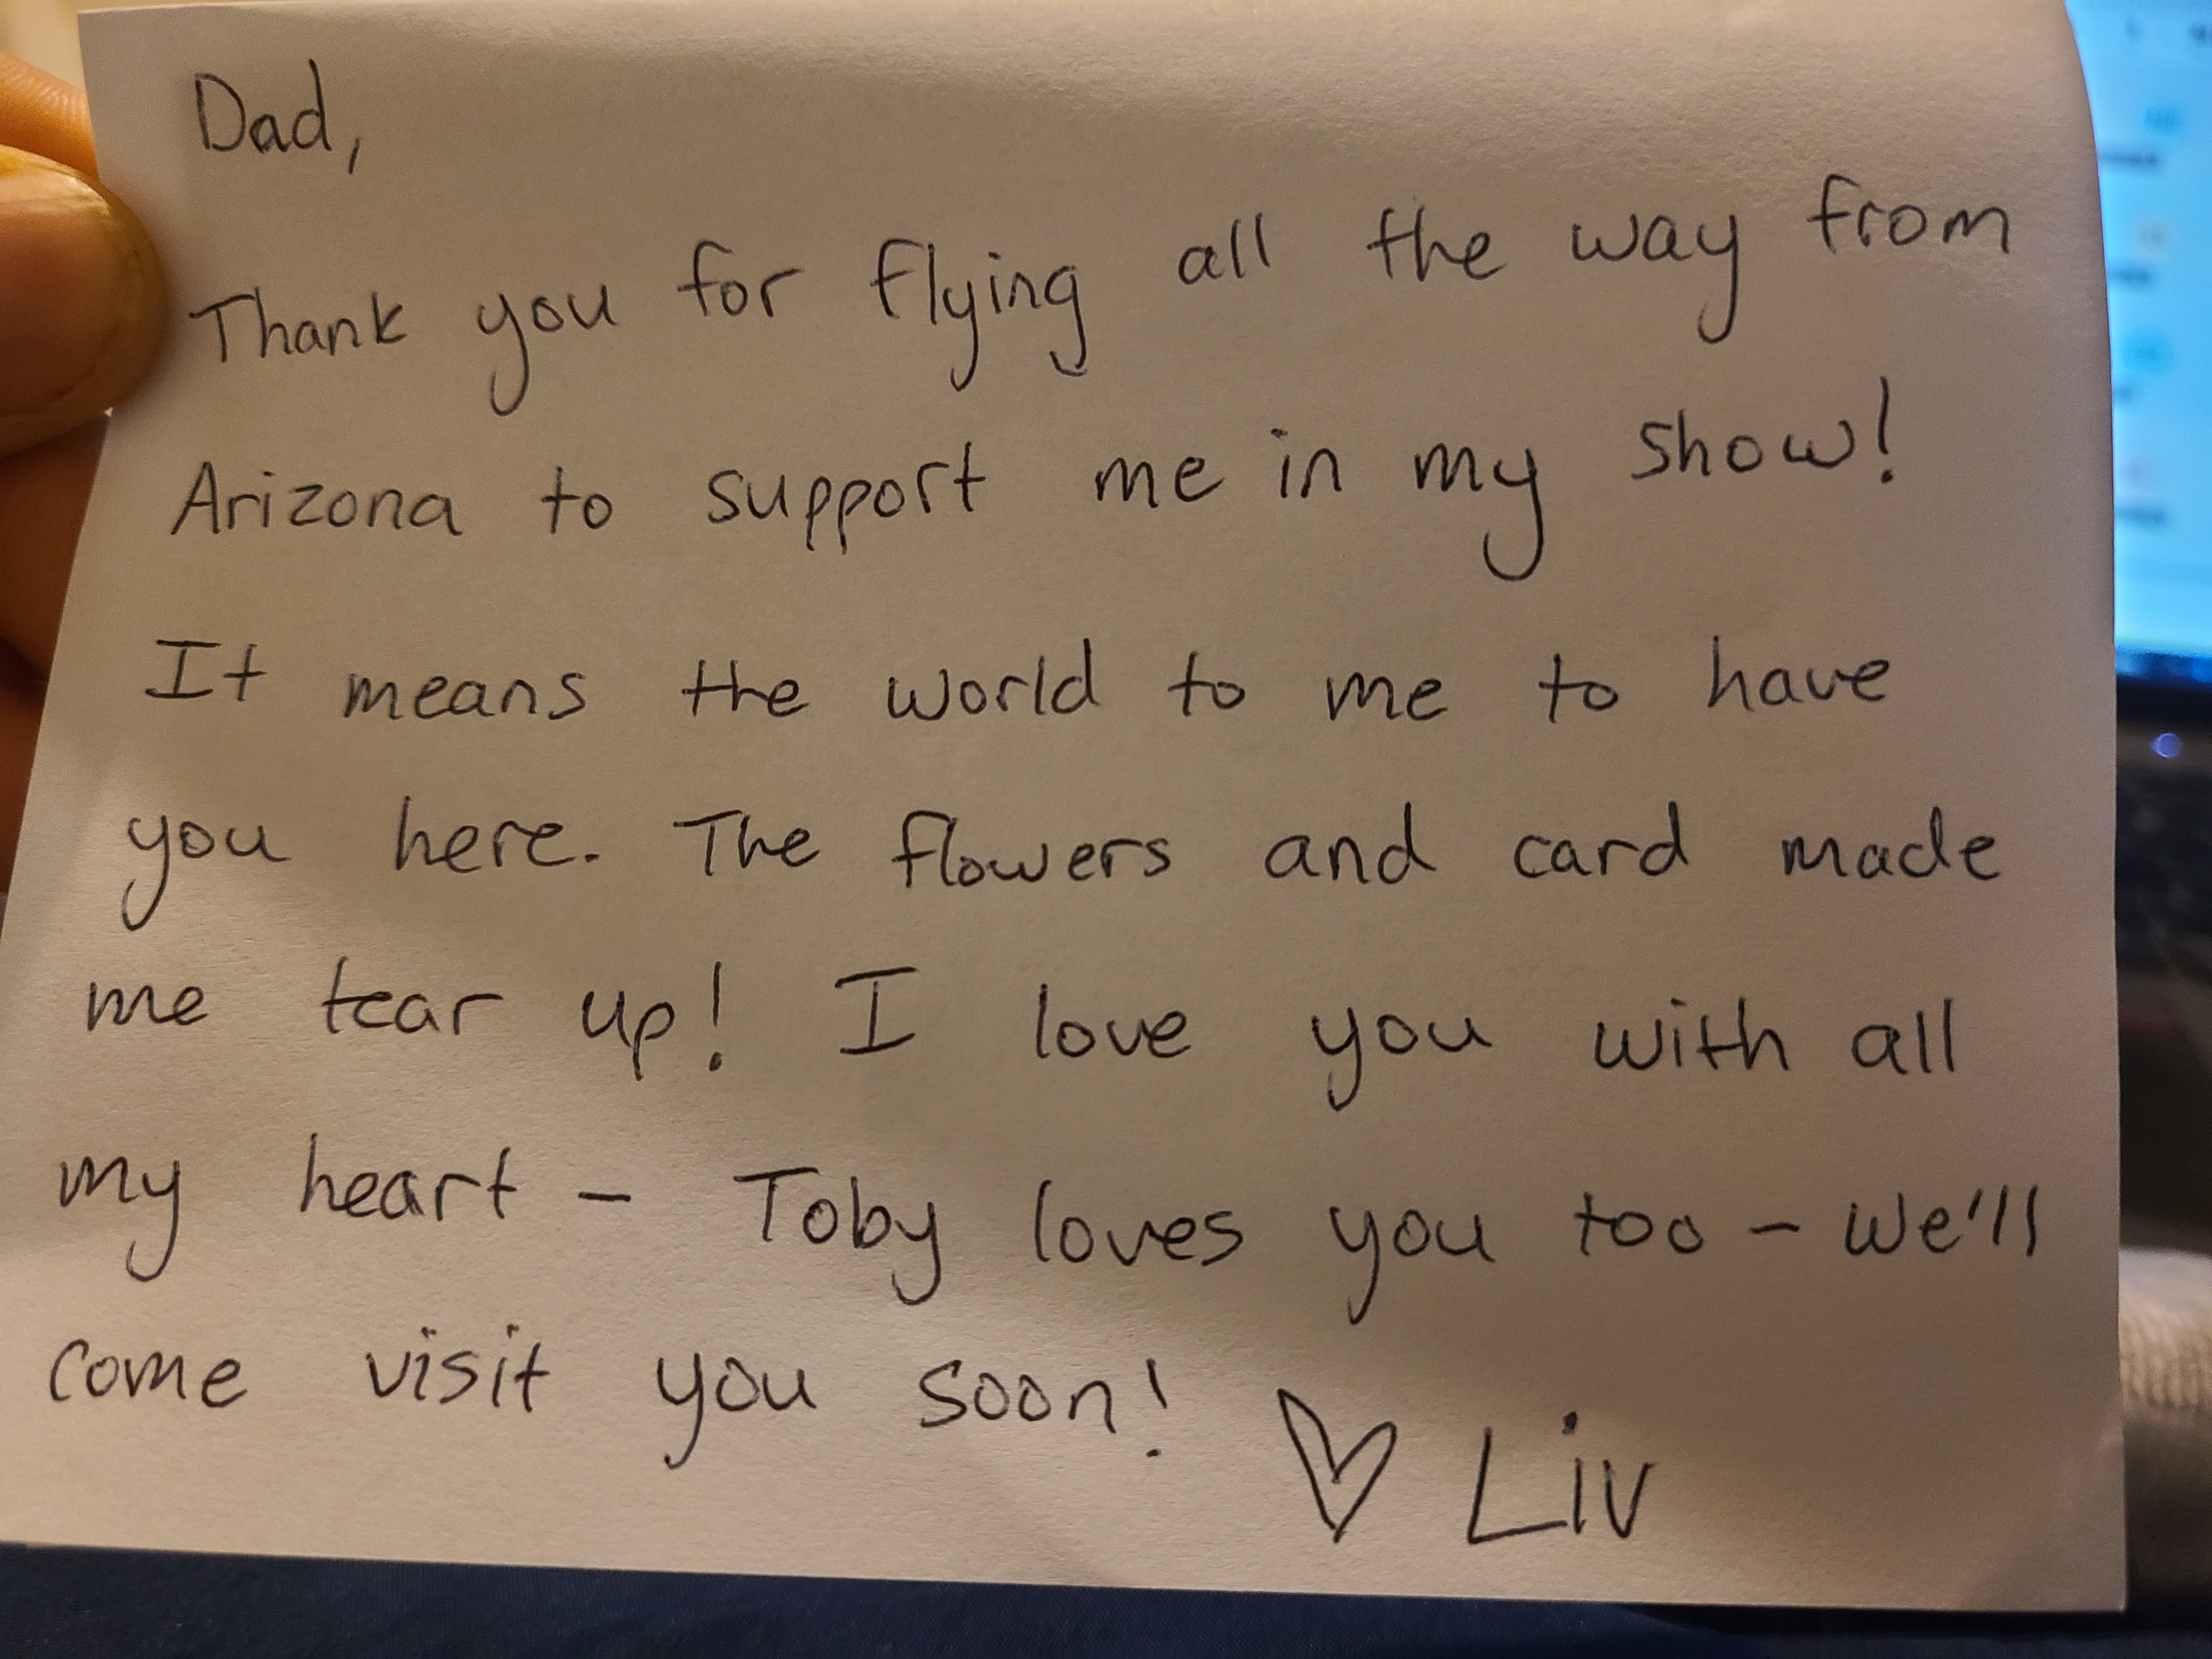 Dad,
Thank you for flying all the way from
Arizona to support me in my show!
It means the world to me to have
you here. The flowers and card made
me tear up! I love you with all
my heart - Toby loves you too - We'll
come visit you soon! ♡ Liv